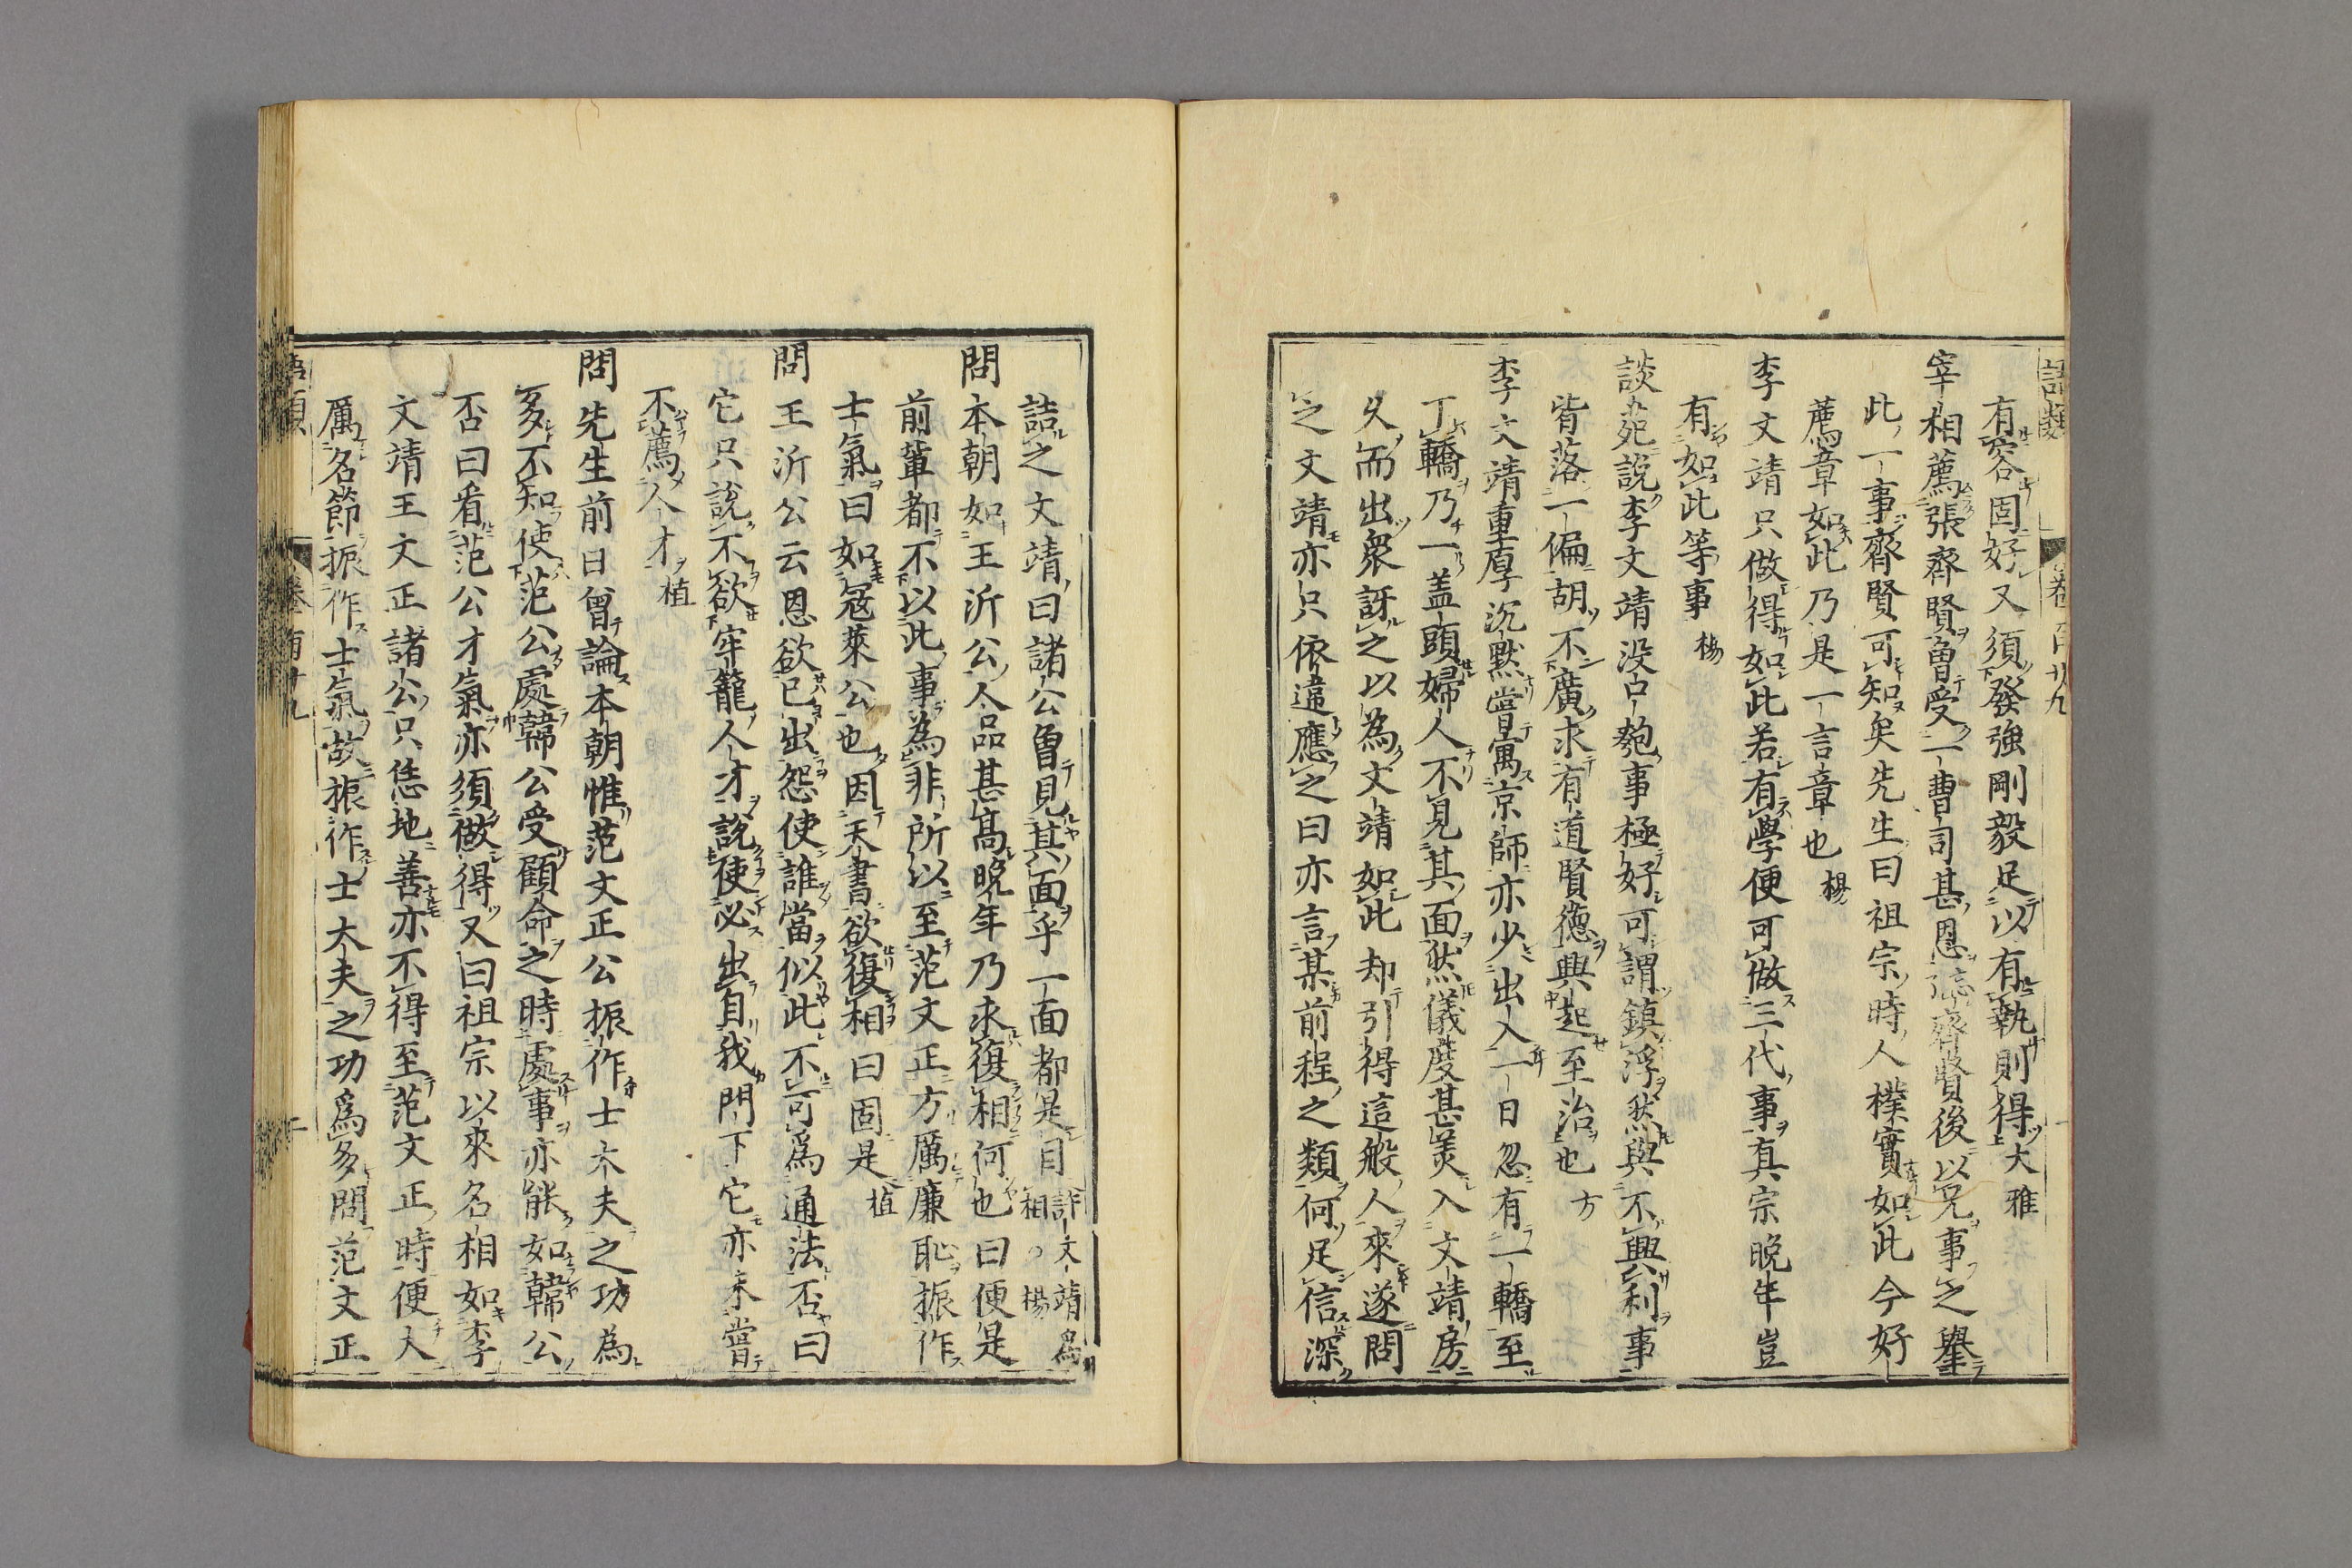 語類 卷百廿九
有容固好又須發強剛毅足以有執則得大雅
宰相薦張齊賢曾受一曹司甚恩齊賢後以兄事之舉
此一事齊賢可知矣先生曰祖宗時人樸實如此今好
薦章如此乃是一言章也 楊
李文靖只做得如此若有學便可做三代事真宗晚年豈
有如此等事 楊
談苑說李文靖没口匏事極好可謂鎮浮然與不興利事
皆落一偏胡不廣求有道賢德興起至治也 方
李文靖重厚沉默嘗寓京師亦少出入一日忽有一轎至
丁轎乃一盖頭婦人不見其面然儀度甚美入文靖房
久而出衆訝之以為文靖如此却引得這般人來遂問
之文靖亦只依違應之曰亦言某前程之類何足信深
詰之文靖曰諸公曾見其面乎一面都是目 許文靖爲相〇楊
問本朝如王沂公人品甚高晚年乃求復相何也曰便是
前軰都不以此事為非所以至范文正方厲廉恥振作
士氣曰如寇萊公也因天書欲復相曰固是 植
問王沂公云恩欲已出怨使誰當似此不可爲通法否曰
它只說不欲牢籠人才說使必出自我門下它亦未嘗
不薦人才 植
問先生前日曾論本朝惟范文正公振作士大夫之功為
多不知使范公處韓公受顧命之時處事亦能如韓公
否曰看范公才氣亦須做得又曰祖宗以來名相如李
文靖王文正諸公只恁地善亦不得至范文正時便大
厲名節振作士氣故振作士大夫之功爲多問范文正
語類 卷百廿九